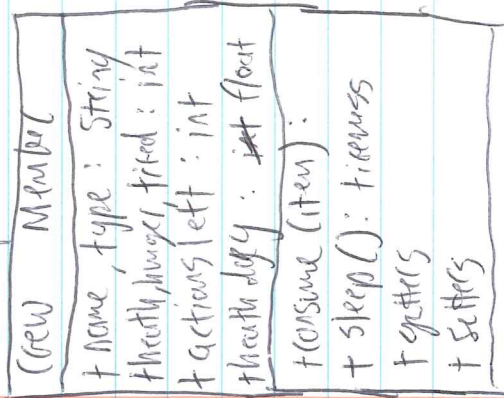 Crew Member
+ name, type : String
+ health, hunger, tired : int
+ actions left : int
+ health degy : int float
+ consume (item) :
+ sleep () : tireness
+ getters
+ setters